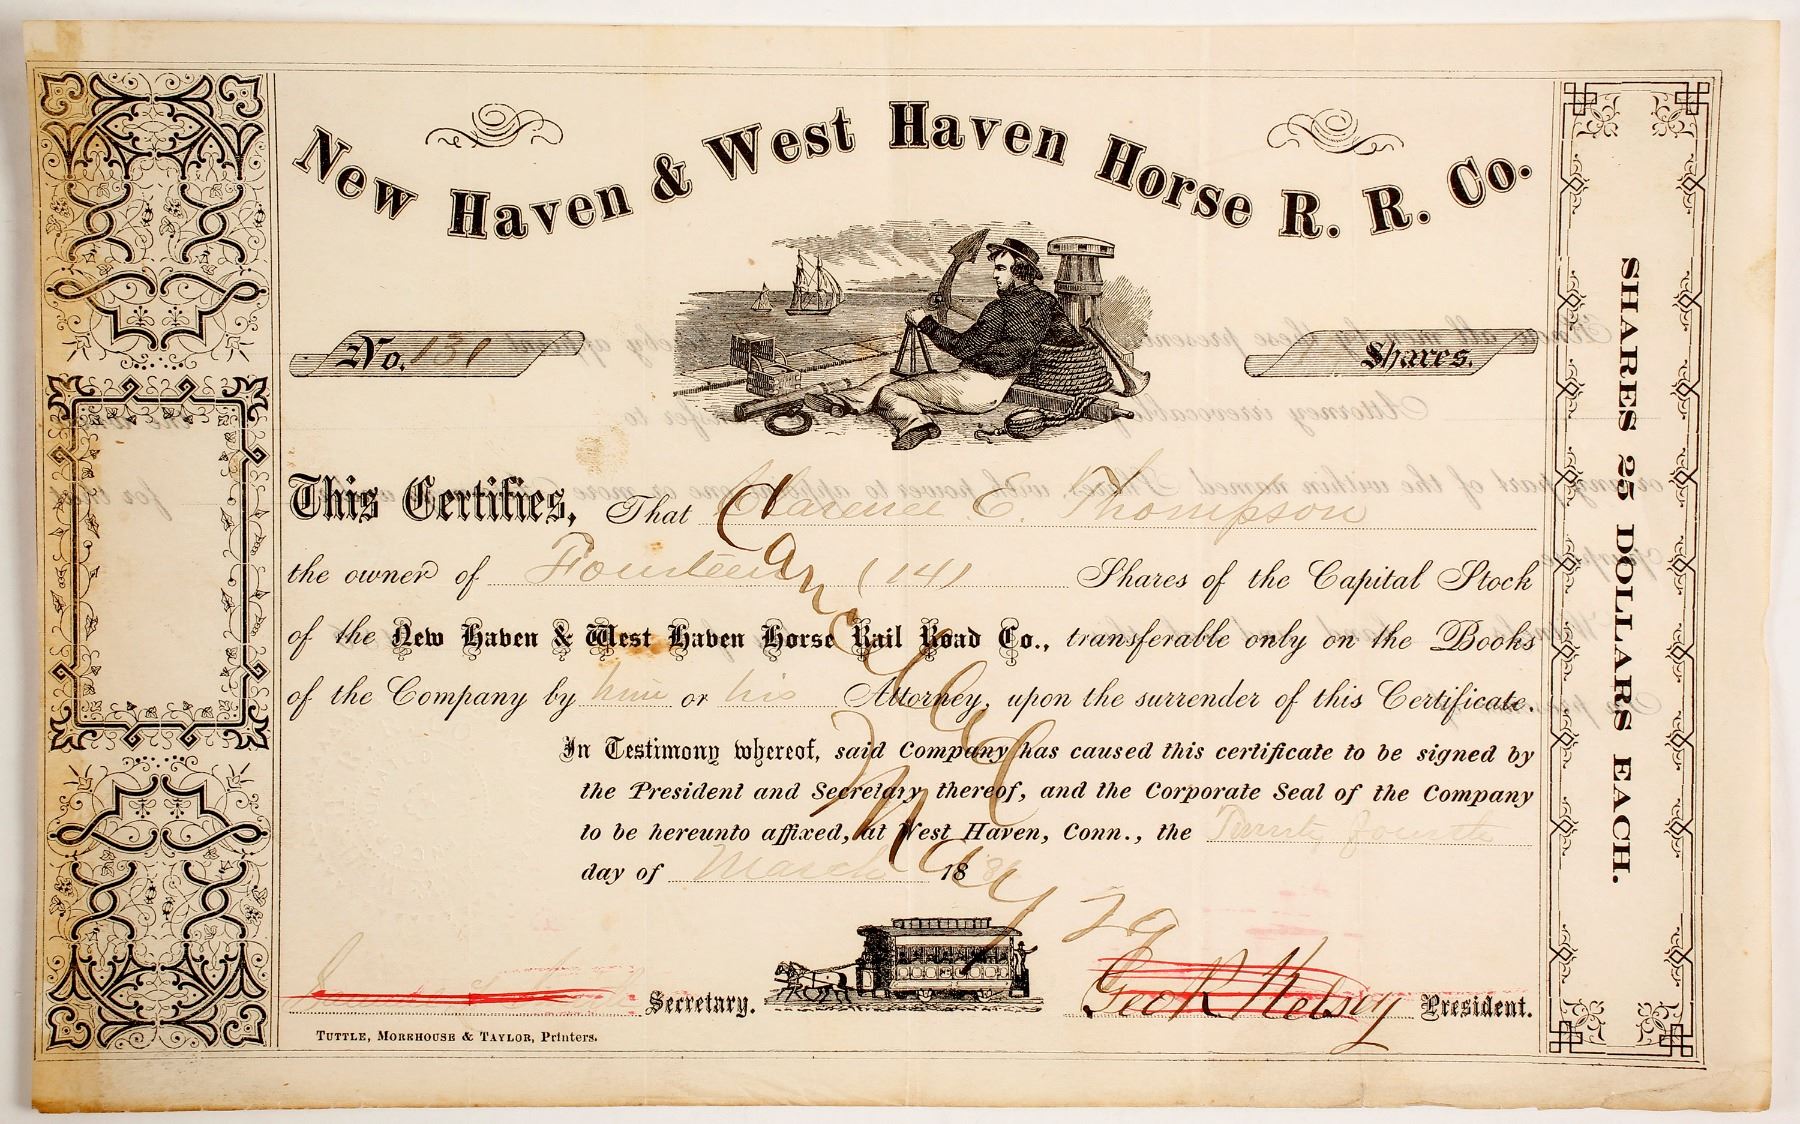 New Haven & West Haven Horse R. R. Co.
No. 131
Shares.
This Certifies, That Clarence E. Thompson
the owner of Fourteen (14) Shares of the Capital Stock
of the New Haven & West Haven Horse Rail Road Co., transferable only on the Books
of the Company by him or his Attorney, upon the surrender of this Certificate.
In Testimony whereof, said Company has caused this certificate to be signed by
the President and Secretary thereof, and the Corporate Seal of the Company
to be hereunto affixed, at West Haven, Conn., the Twenty fourth
day of March 18
Cancelled
May 29
Secretary.
Geo R Kelsey President.
TUTTLE, MOREHOUSE & TAYLOR, Printers.
SHARES 25 DOLLARS EACH.